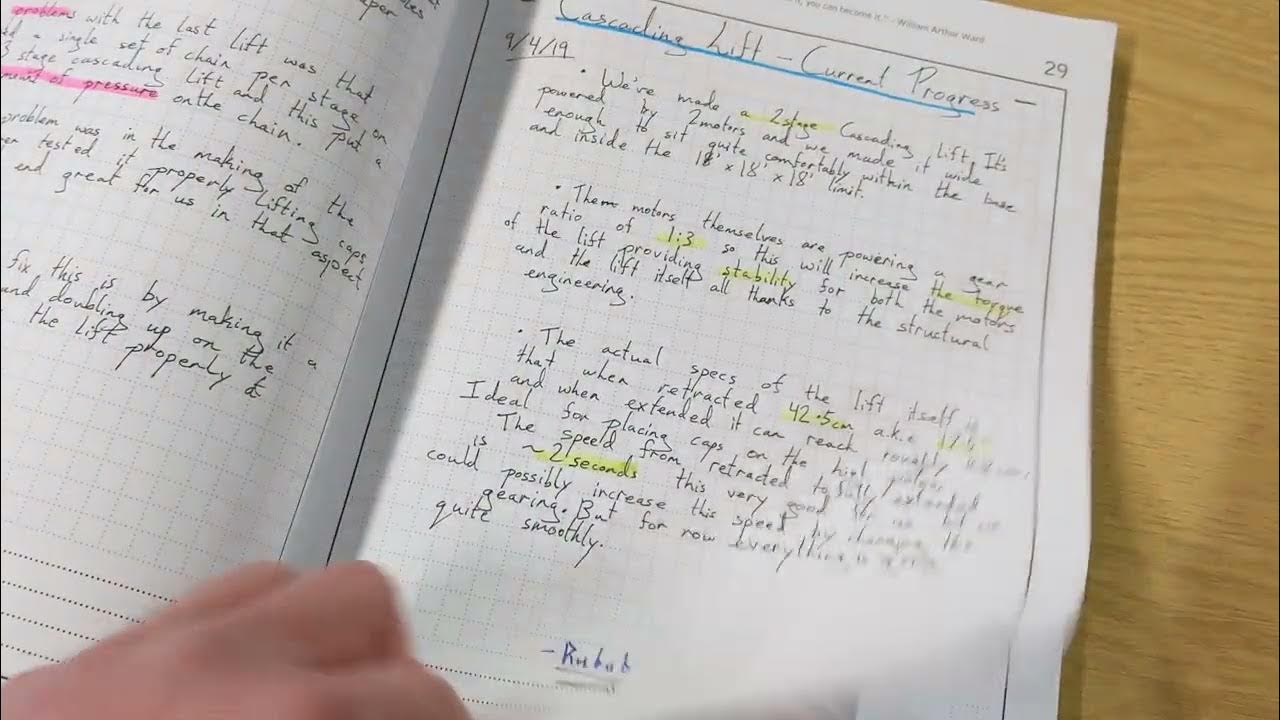 problems with the last lift was that
a single set of chain per stage on
3 stage cascading lift and this put a
amount of pressure on the chain.
problem was in the making of the
tested it properly lifting caps
end great for us in that aspect
fix this is by making it a
and doubling up on the
the lift properly &
it, you can become it." - William Arthur Ward
29
Cascading Lift - Current Progress -
9/4/19
• We've made a 2 stage Cascading lift. It's
powered by 2 motors and we made it wide
enough to sit quite comfortably within the base
and inside the 18' x 18' x 18' limit.
• The motors themselves are powering a gear
ratio of 1:3 so this will increase the torque
of the lift providing stability for both the motors
and the lift itself all thanks to the structural
engineering.
• The actual specs of the lift itself is
that when retracted 42.5cm a.k.a
and when extended it can reach roughly
Ideal for placing caps on the high
The speed from retracted to fully extended
is ~2 seconds this very good
could possibly increase this speed by changing the
gearing. But for now everything is
quite smoothly.